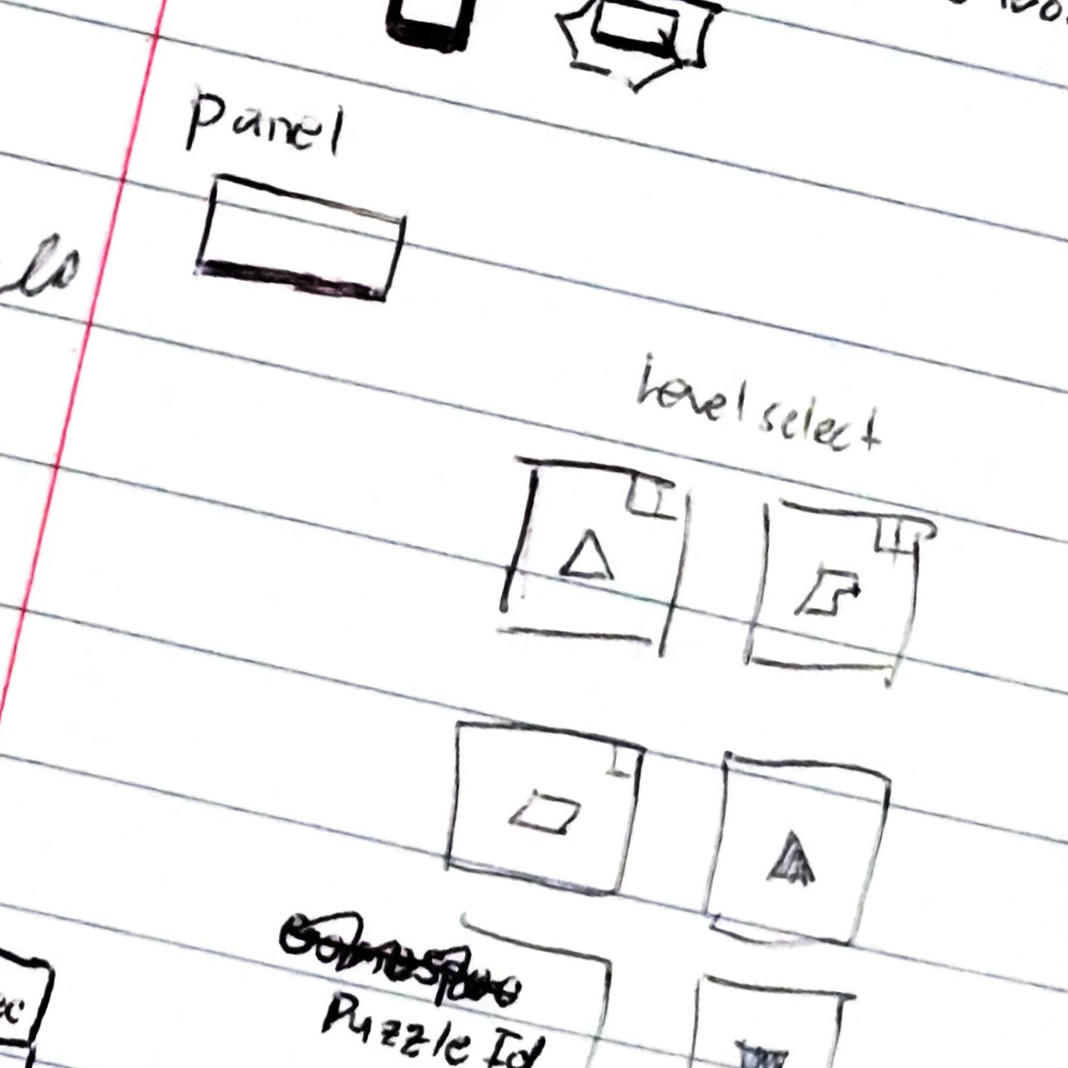 Panel
Level select
Puzzle Id